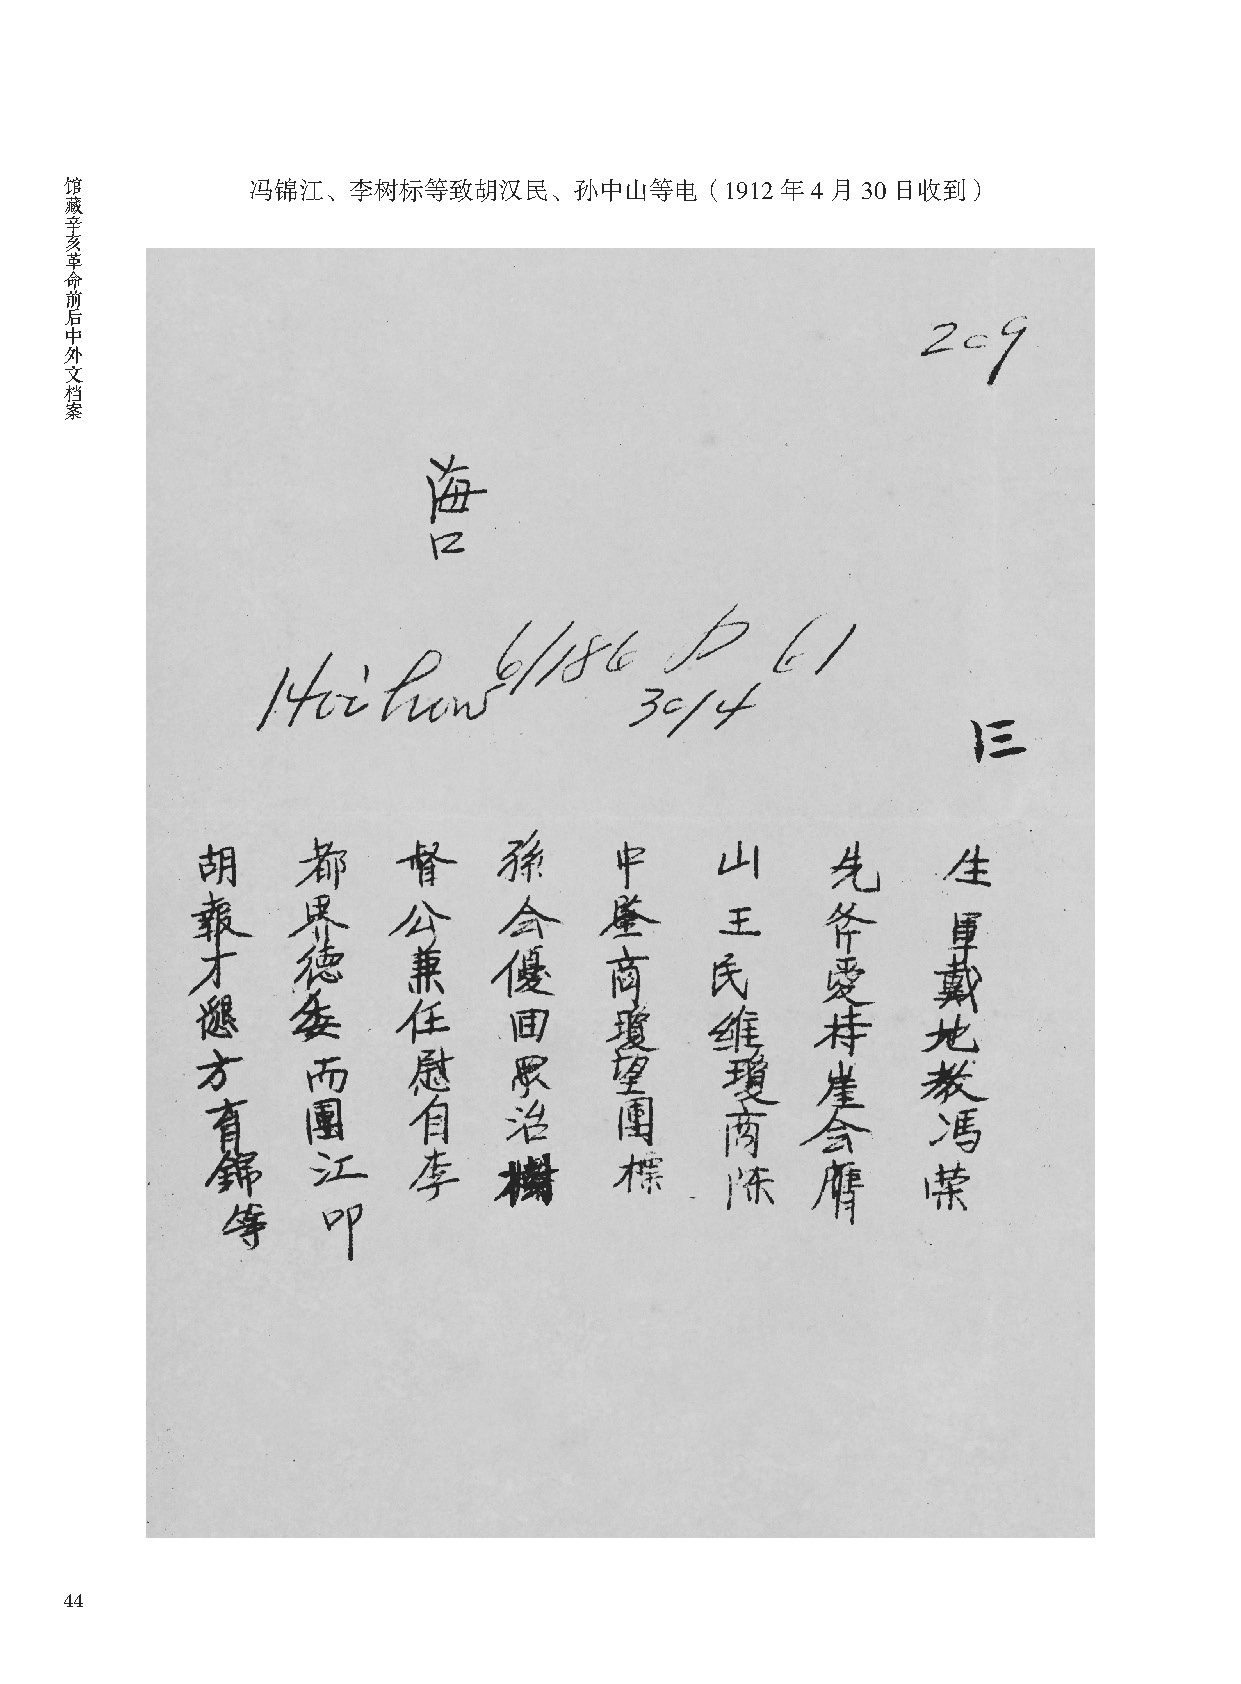 冯锦江、李树标等致胡汉民、孙中山等电（1912年4月30日收到）
馆藏辛亥革命前后中外文档案
209
海口
Hoihow 6/186 P 61
30/4
胡都督孫中山先生
報界公会鑒王斧軍
才德兼優商民愛戴
懇委任囬瓊維持地
方而慰眾望瓊崖教
育團自治團商会馮
錦江李樹標陈膺荣
等叩
44